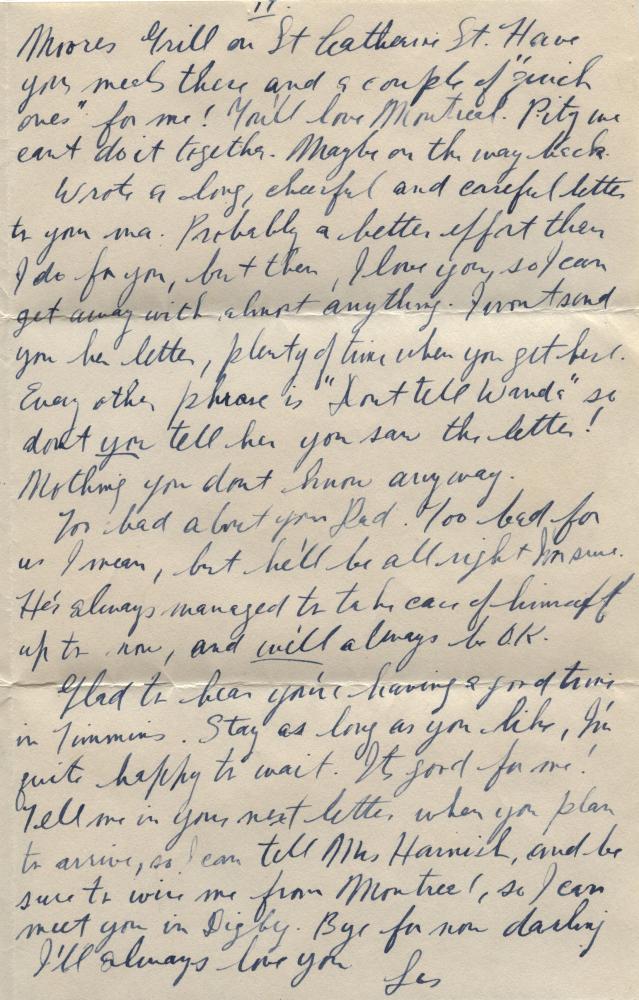 Moores Grill on St Catherine St. Have
your meals there and a couple of "quick
ones" for me! You'll love Montreal. Pity we
cant do it together. Maybe on the way back.
Wrote a long, cheerful and careful letter
to your ma. Probably a better effort than
I do for you, but then, I love you, so I can
get away with almost anything. I wont send
you her letter, plenty of time when you get here.
Every other phrase is "Dont tell Wanda" so
dont you tell her you saw the letter!
Nothing you dont know anyway.
Too bad about your Dad. Too bad for
us I mean, but he'll be all right I'm sure.
He's always managed to take care of himself
up to now, and will always be OK.
Glad to hear you're having a good time
in Timmins. Stay as long as you like, I'm
quite happy to wait. It's good for me!
Tell me in your next letter when you plan
to arrive, so I can tell Mrs Harnish, and be
sure to wire me from Montreal, so I can
meet you in Digby. Bye for now darling
I'll always love you
Les